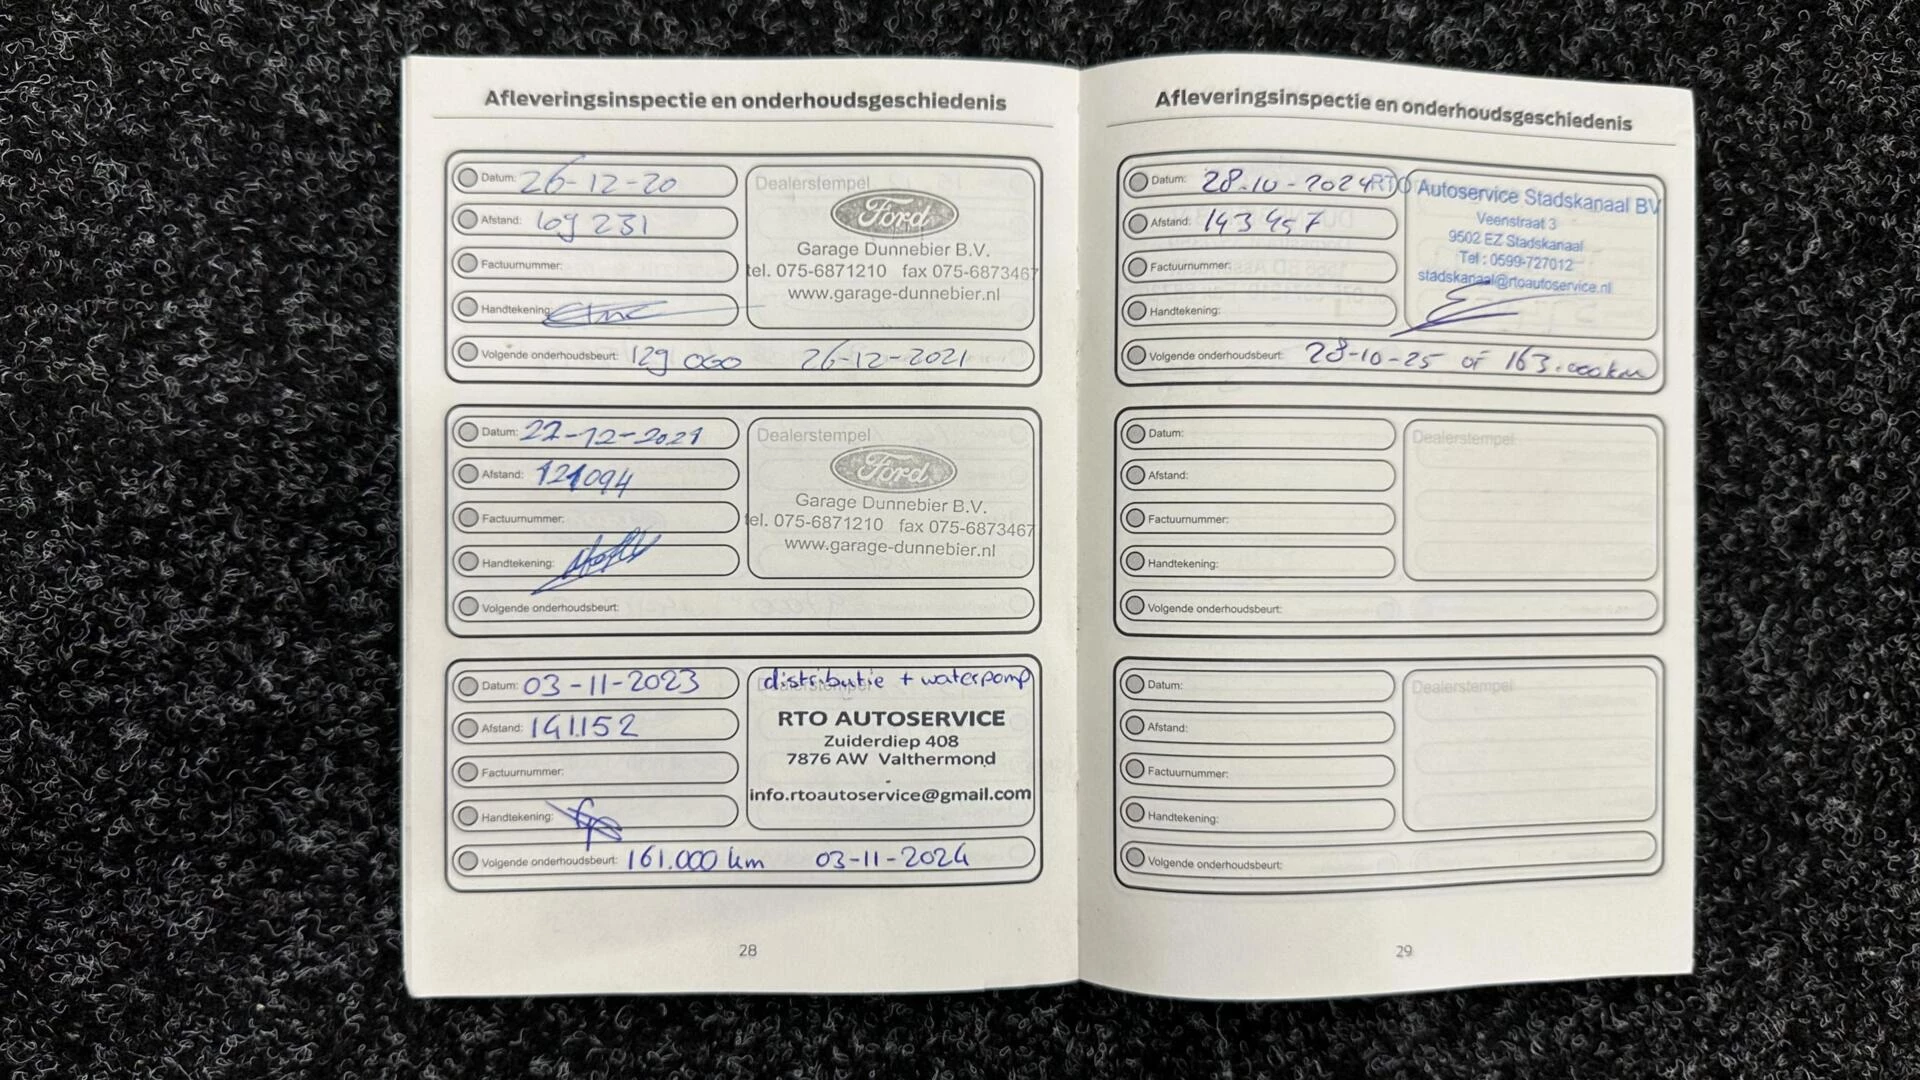 Afleveringsinspectie en onderhoudsgeschiedenis
Datum: 26-12-20
Afstand: 109 231
Factuurnummer:
Handtekening:
Dealerstempel
Ford
Garage Dunnebier B.V.
tel. 075-6871210 fax 075-6873467
www.garage-dunnebier.nl
Volgende onderhoudsbeurt: 129 000 26-12-2021
Datum: 22-12-2021
Afstand: 121094
Factuurnummer:
Handtekening:
Dealerstempel
Ford
Garage Dunnebier B.V.
tel. 075-6871210 fax 075-6873467
www.garage-dunnebier.nl
Volgende onderhoudsbeurt:
Datum: 03-11-2023
Afstand: 141.152
Factuurnummer:
Handtekening:
distributie + waterpomp
RTO AUTOSERVICE
Zuiderdiep 408
7876 AW Valthermond
info.rtoautoservice@gmail.com
Volgende onderhoudsbeurt: 161.000 km 03-11-2024
28
Afleveringsinspectie en onderhoudsgeschiedenis
Datum: 28-10-2024
Afstand: 143 457
Factuurnummer:
Handtekening:
RTO Autoservice Stadskanaal BV
Veenstraat 3
9502 EZ Stadskanaal
Tel : 0599-727012
stadskanaal@rtoautoservice.nl
Volgende onderhoudsbeurt: 28-10-25 of 163.000km
Datum:
Afstand:
Factuurnummer:
Handtekening:
Dealerstempel
Volgende onderhoudsbeurt:
Datum:
Afstand:
Factuurnummer:
Handtekening:
Dealerstempel
Volgende onderhoudsbeurt:
29